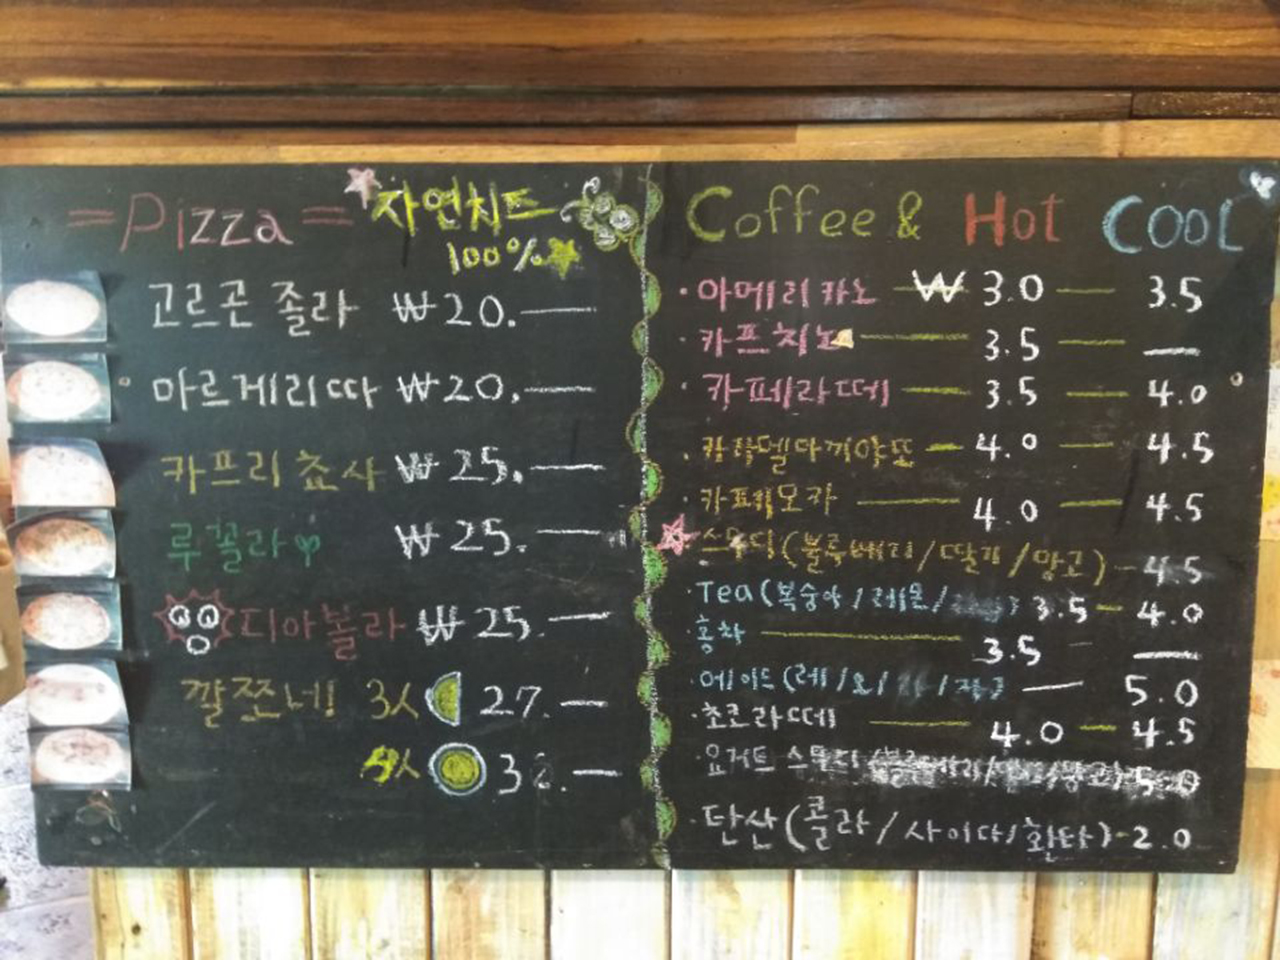 =Pizza= 자연치즈
100%
고르곤졸라 ₩20.—
마르게리따 ₩20.—
카프리쵸사 ₩25.—
루꼴라 ₩25.—
디아볼라 ₩25.—
깔쪼네! 3人 27.—
4人 —
Coffee & Hot COOL
·아메리카노 — ₩ 3.0 — 3.5
·카프치노 — 3.5 — —
·카페라떼 — 3.5 — 4.0
·카라멜마끼야또 — 4.0 — 4.5
·카페모카 — 4.0 — 4.5
스무디(블루베리/딸기/망고) - 4.5
·Tea(복숭아/레몬/ ) 3.5 — 4.0
·홍차 — 3.5 — —
·에이드(레/오/ / ) — 5.0
·초코라떼 — 4.0 — 4.5
·요거트 스무디(블루베리/ /망고) 5.0
·탄산(콜라/사이다/환타)-2.0